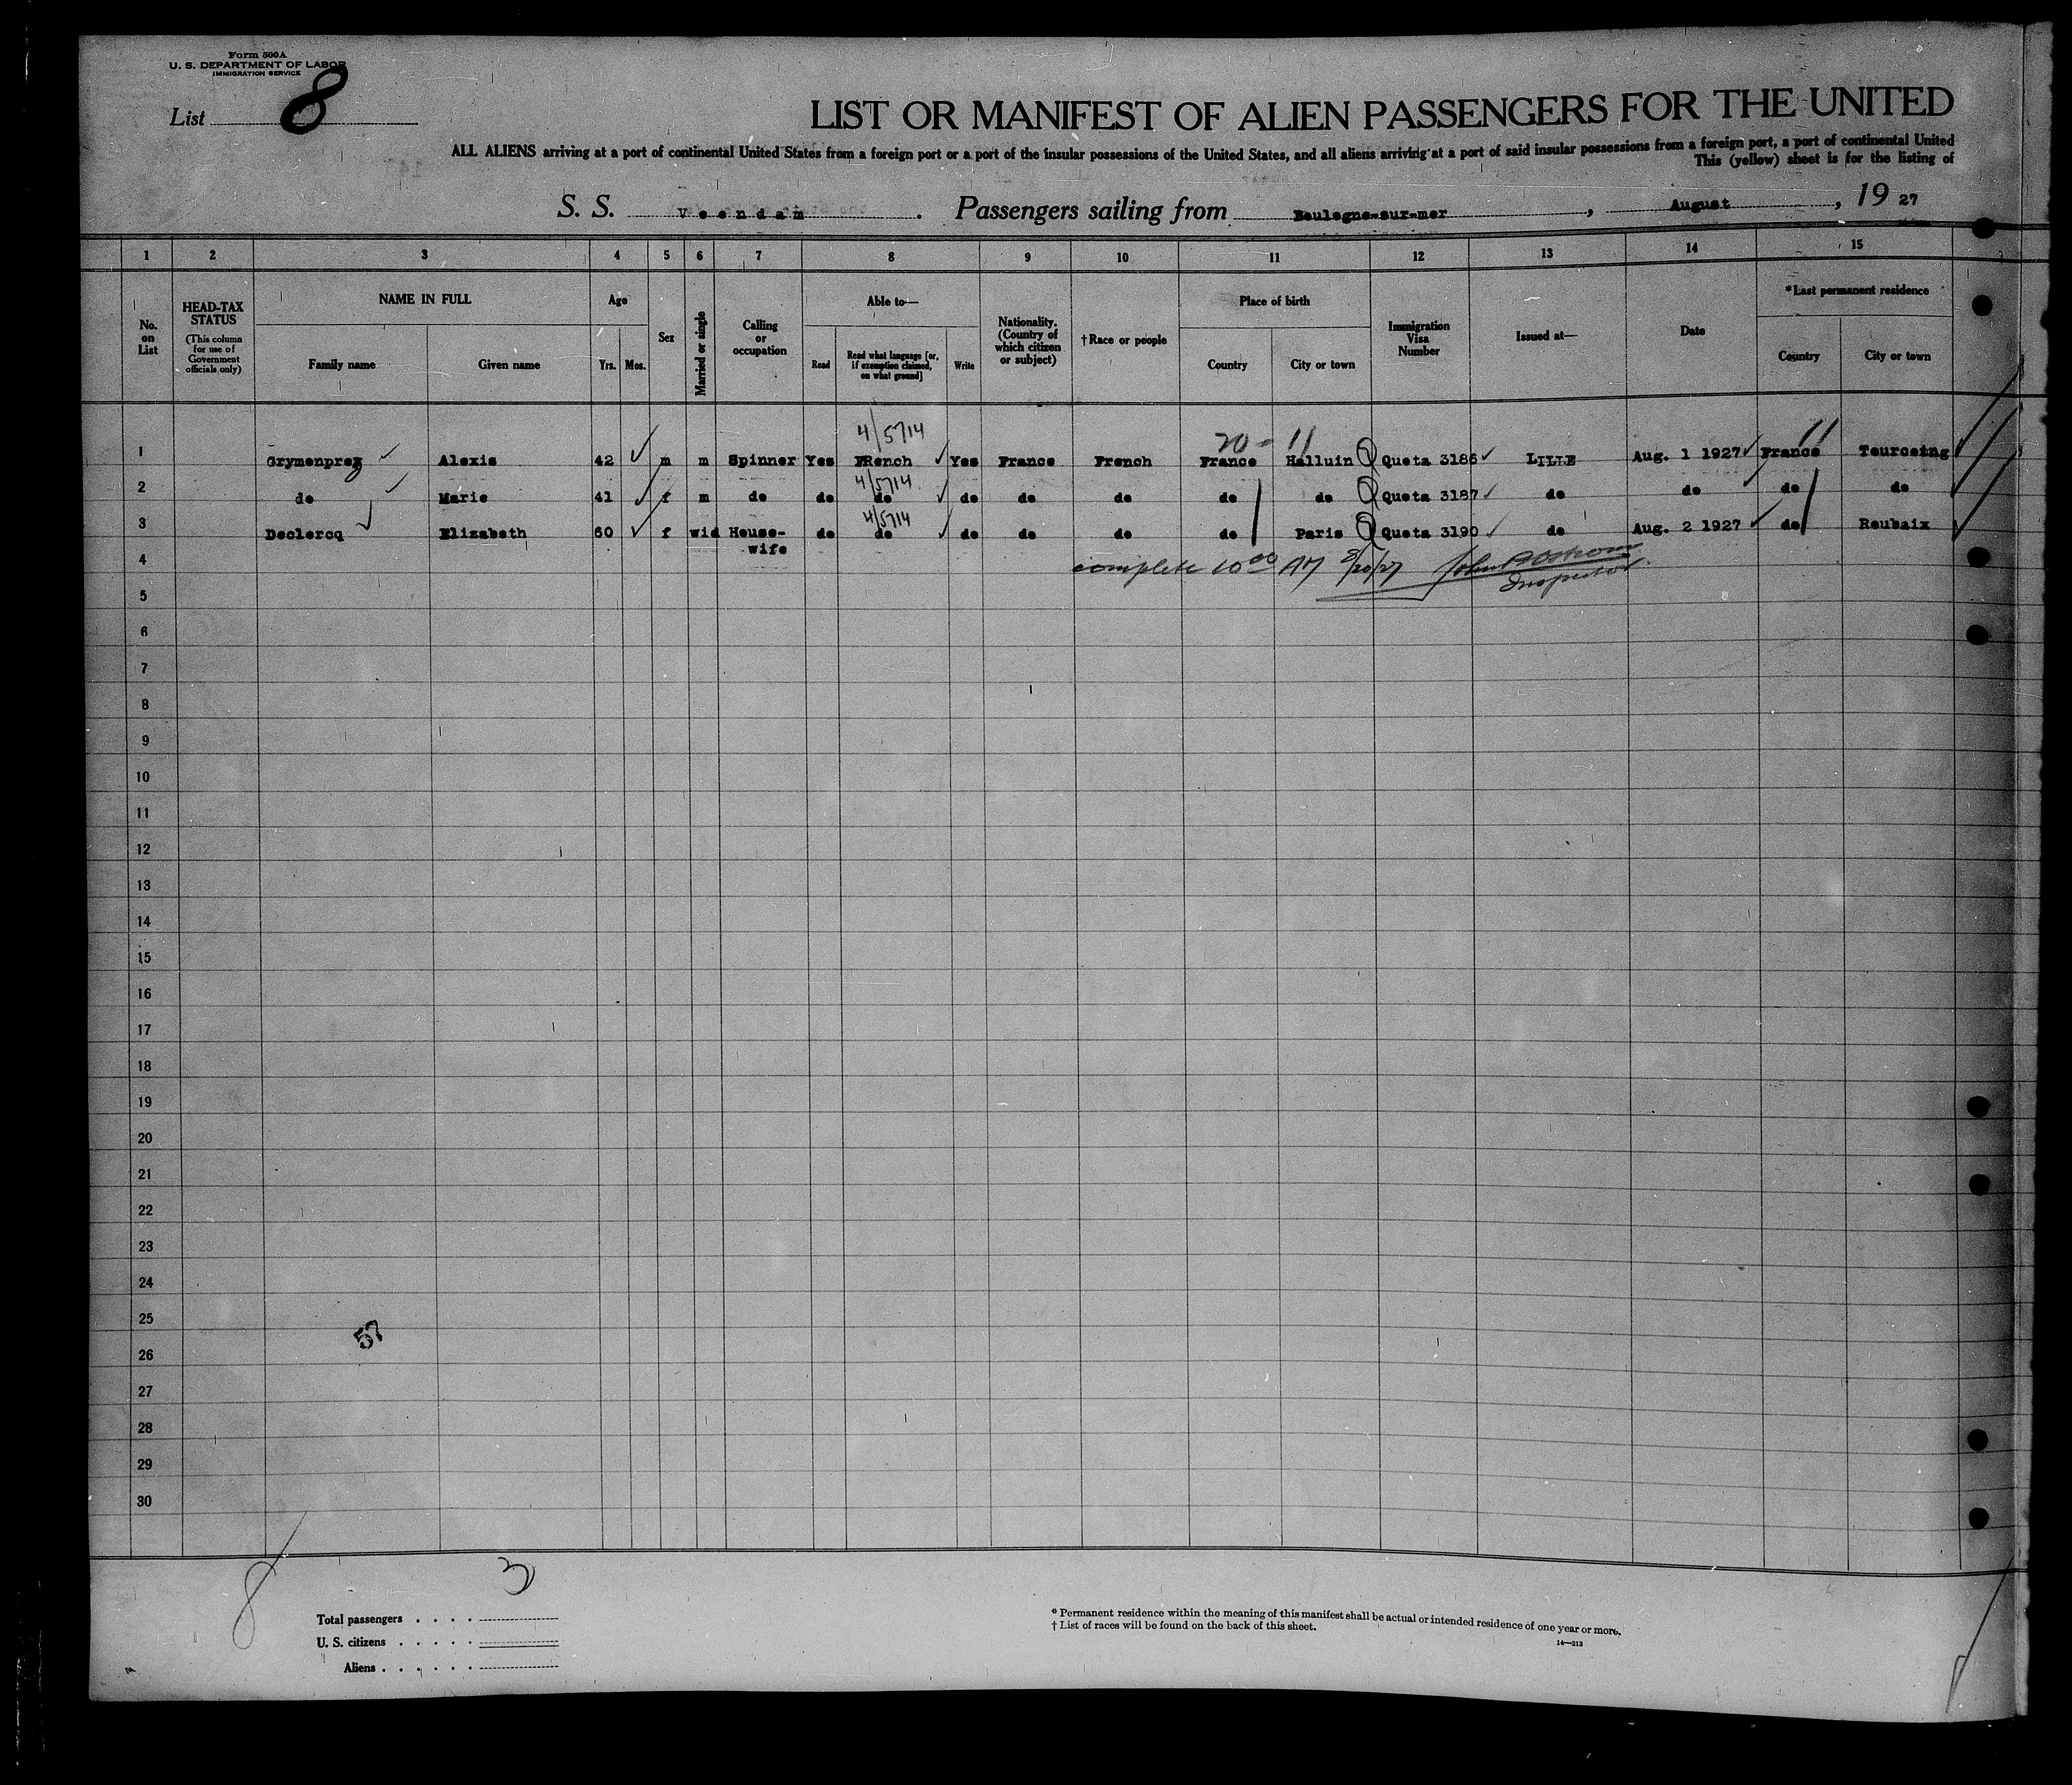 Form 500A
U. S. DEPARTMENT OF LABOR
IMMIGRATION SERVICE
List 8
LIST OR MANIFEST OF ALIEN PASSENGERS FOR THE UNITED
ALL ALIENS arriving at a port of continental United States from a foreign port or a port of the insular possessions of the United States, and all aliens arriving at a port of said insular possessions from a foreign port, a port of continental United
This (yellow) sheet is for the listing of
S. S. Veendam. Passengers sailing from Boulogne-sur-mer, August, 19 27
1 2 3 4 5 6 7 8 9 10 11 12 13 14 15
No. on List
HEAD-TAX STATUS (This column for use of Government officials only)
NAME IN FULL
Family name Given name
Age
Yrs. Mos.
Sex
Married or single
Calling or occupation
Able to—
Read Read what language [or, if exemption claimed, on what ground] Write
Nationality. (Country of which citizen or subject)
†Race or people
Place of birth
Country City or town
Immigration Visa Number
Issued at—
Date
*Last permanent residence
Country City or town
4/5714 20- 11 11
1 Grymonprez Alexis 42 m m Spinner Yes FRench Yes France French France Halluin Quota 3186 LILLE Aug. 1 1927 France Tourcoing
4/5714
2 do Marie 41 f m do do do do do do do do Quota 3187 do do do do
4/5714
3 Declercq Elizabeth 60 f wid House-wife do do do do do do Paris Quota 3190 do Aug. 2 1927 do Roubaix
4 complete 10 00 AM 8/20/27 John
Inspector
5
6
7
8
9
10
11
12
13
14
15
16
17
18
19
20
21
22
23
24
25
57
26
27
28
29
30
8 3
Total passengers
U. S. citizens
Aliens
* Permanent residence within the meaning of this manifest shall be actual or intended residence of one year or more.
† List of races will be found on the back of this sheet.
14—213